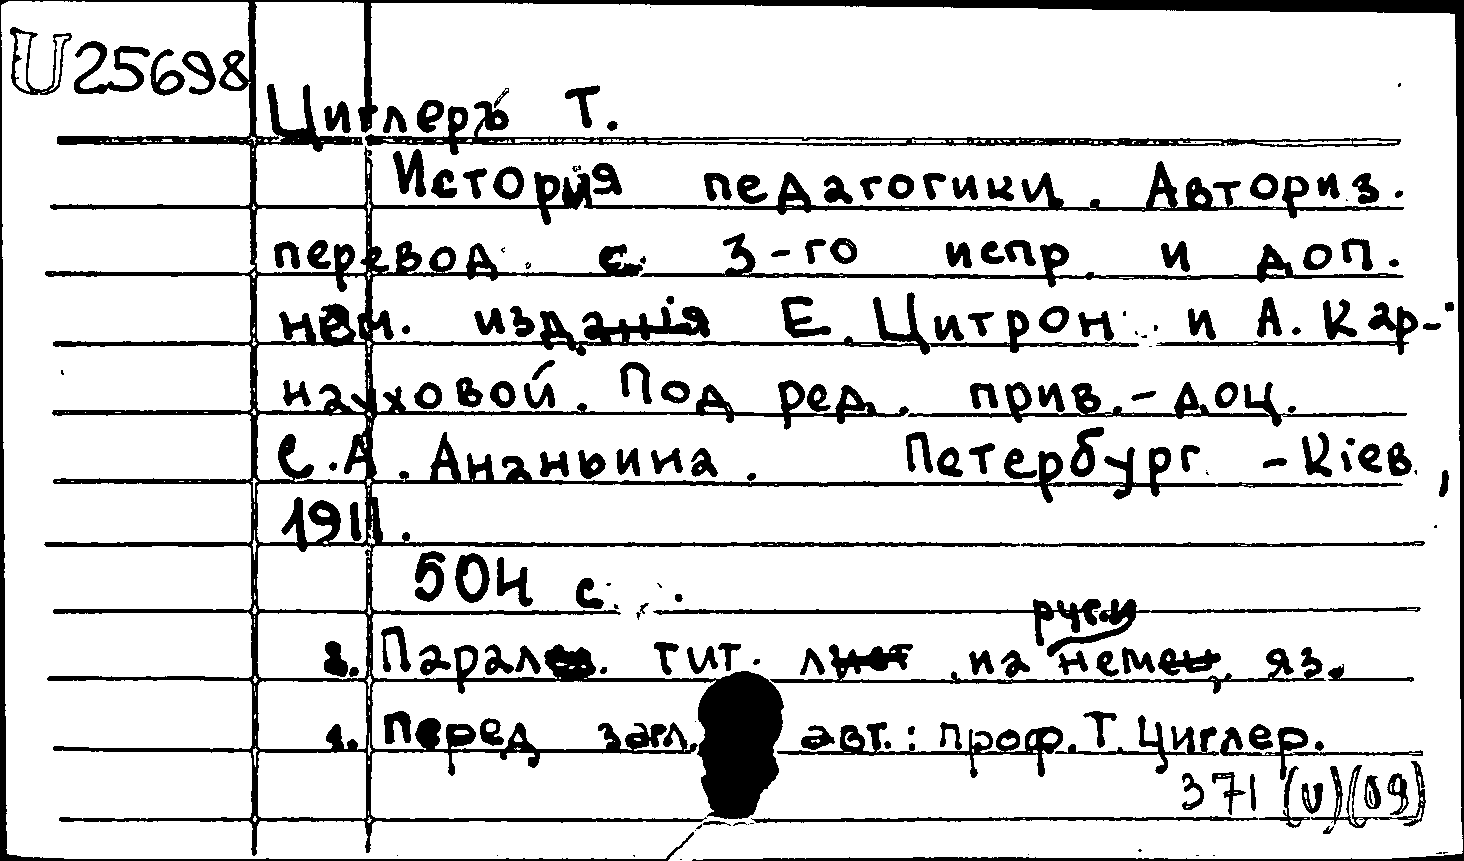 U25698
Циглеръ Т.
История педагогики. Авториз.
перевод с 3-го испр. и доп.
нем. издания Е. Цитрон и А. Кар-
науховой. Под ред. прив.-доц.
С.А. Ананьина. Петербург - Кіев,
1911.
504 с.
русс. и
2. Парал. тит. л. на немец. яз.
1. Перед загл. авт.: проф. Т. Циглер.
371 (U)(09)